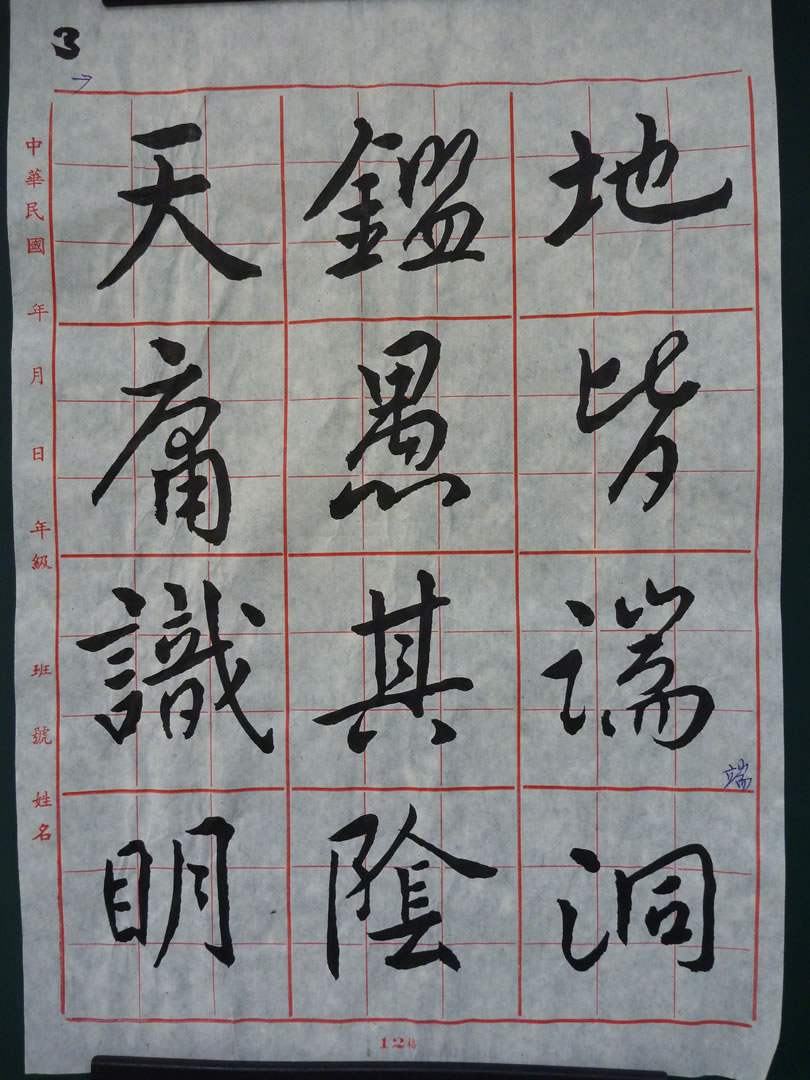 3
→
天鑑地
庸愚皆
識其端
端
明陰洞
中華民國 年 月 日 年級 班 號 姓名
12格